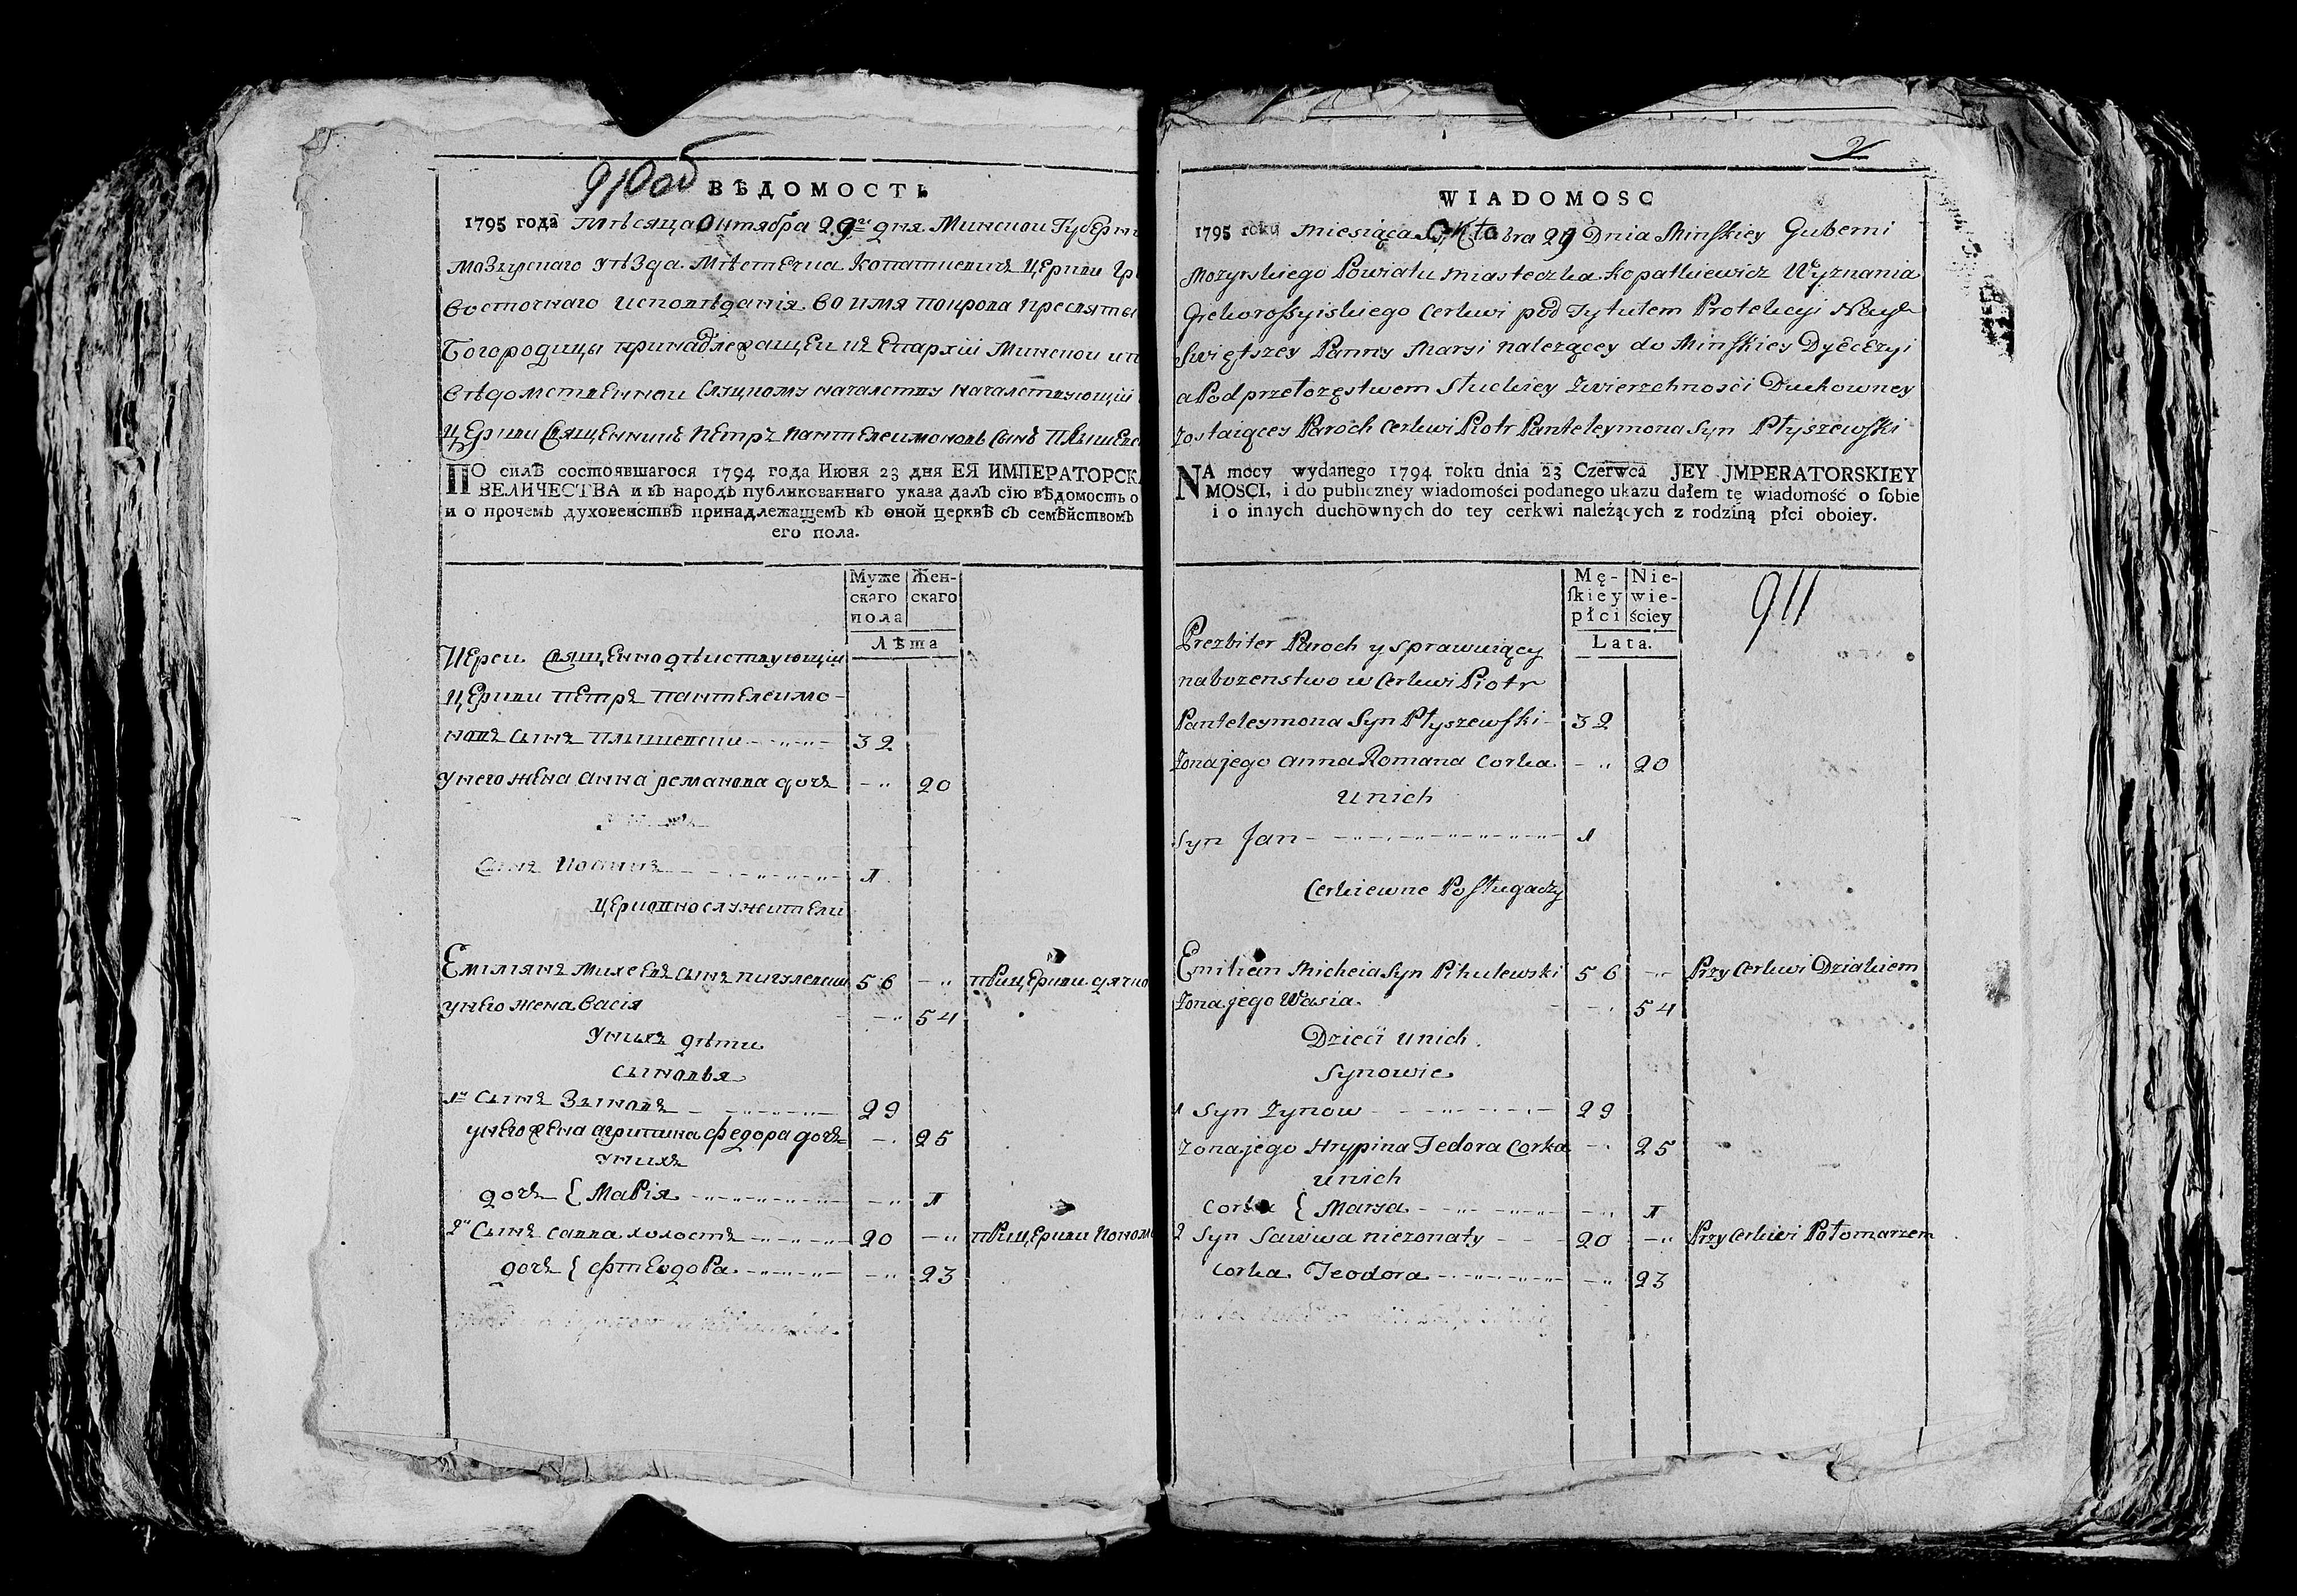 910об
ВѢДОМОСТЬ
1795 года мѣсяца Октября 29го дня Минской Губерни
Мозырскаго уѣзда Мѣстечка Копаткевичъ Церкви Гр
Восточнаго исповѣданія во имя покрова пресвяты
Богородицы принадлежащей къ Епархіи Минской и п
вѣдомственной слуцкому началству началствующій
Церкви Священникъ Петръ Пантелеимоновъ сынъ Плышевс
ПО силѣ состоявшагося 1794 года Июня 23 дня ЕЯ ИМПЕРАТОРСК
ВЕЛИЧЕСТВА и въ народъ публикованнаго указа далъ сію вѣдомость о
и о прочемъ духовенствѣ принадлежащемъ къ оной церквѣ съ семѣйствомъ
его пола.
Муже Жен-
скаго скаго
пола
Лѣта
Иереи Священнодѣиствующіи
Церкви Петръ Пантелеимо-
новъ сынъ Плышевски 32
у него жена Анна романова дочь - 20
Сынъ Иоаннъ 1
Церковнослужители
Емилиянъ Михеевъ сынъ Пигулевски 56 - при Церкви дячко
у него жена Васія - 54
у нихъ дѣти
сыновья
1й Сынъ Зыновъ 29
у него жена агрипина федора дочь - 25
у нихъ
дочь { Марія - 1
2й Сынъ савва холостъ 20 - при Церкви Поном
дочь { фтеодора - 23
2
WIADOMOSC
1795 roku miesiąca Oktobra 29 Dnia Minſkiey Guberni
Mozyrskiego Powiatu miasteczka Kopatkiewicz Wyznania
Grekoroſsyiskiego Cerkwi pod Tytułem Protekcyi Nayś
Swiętszey Panny Maryi nalezącey do Minſkiey Dyecezyi
a Pod przełozęstwem Słuckiey Zwierzchności Duchowney
Zostaiącey Paroch Cerkwi Piotr Panteleymona Syn Płyszewſki
NA mocy wydanego 1794 roku dnia 23 Czerwca JEY JMPERATORSKIEY
MOSCI, i do publiczney wiadomości podanego ukazu dałem tę wiadomość o ſobie
i o innych duchownych do tey cerkwi należących z rodziną płci oboiey.
Mę- Nie-
ſkiey wie-
płci ściey
Lata.
911
Prezbiter Paroch y sprawuiący
nabozenstwo w Cerkwi Piotr
Panteleymona Syn Płyszewſki 32
Zona jego Anna Romana Corka - 20
U nich
Syn Jan 1
Cerkiewne Poſługaczy
Emilian Micheia Syn Pihulewski 56 - Przy Cerkwi Dziakiem
Zona jego Wasia - 54
Dzieci u nich
Synowie
1 Syn Zynow 29
Zona jego Hrypina Fedora Corka - 25
u nich
Corka { Marya - 1
2 Syn Sawwa niezonaty 20 - Przy Cerkwi Połomarzem
Corka Teodora - 23